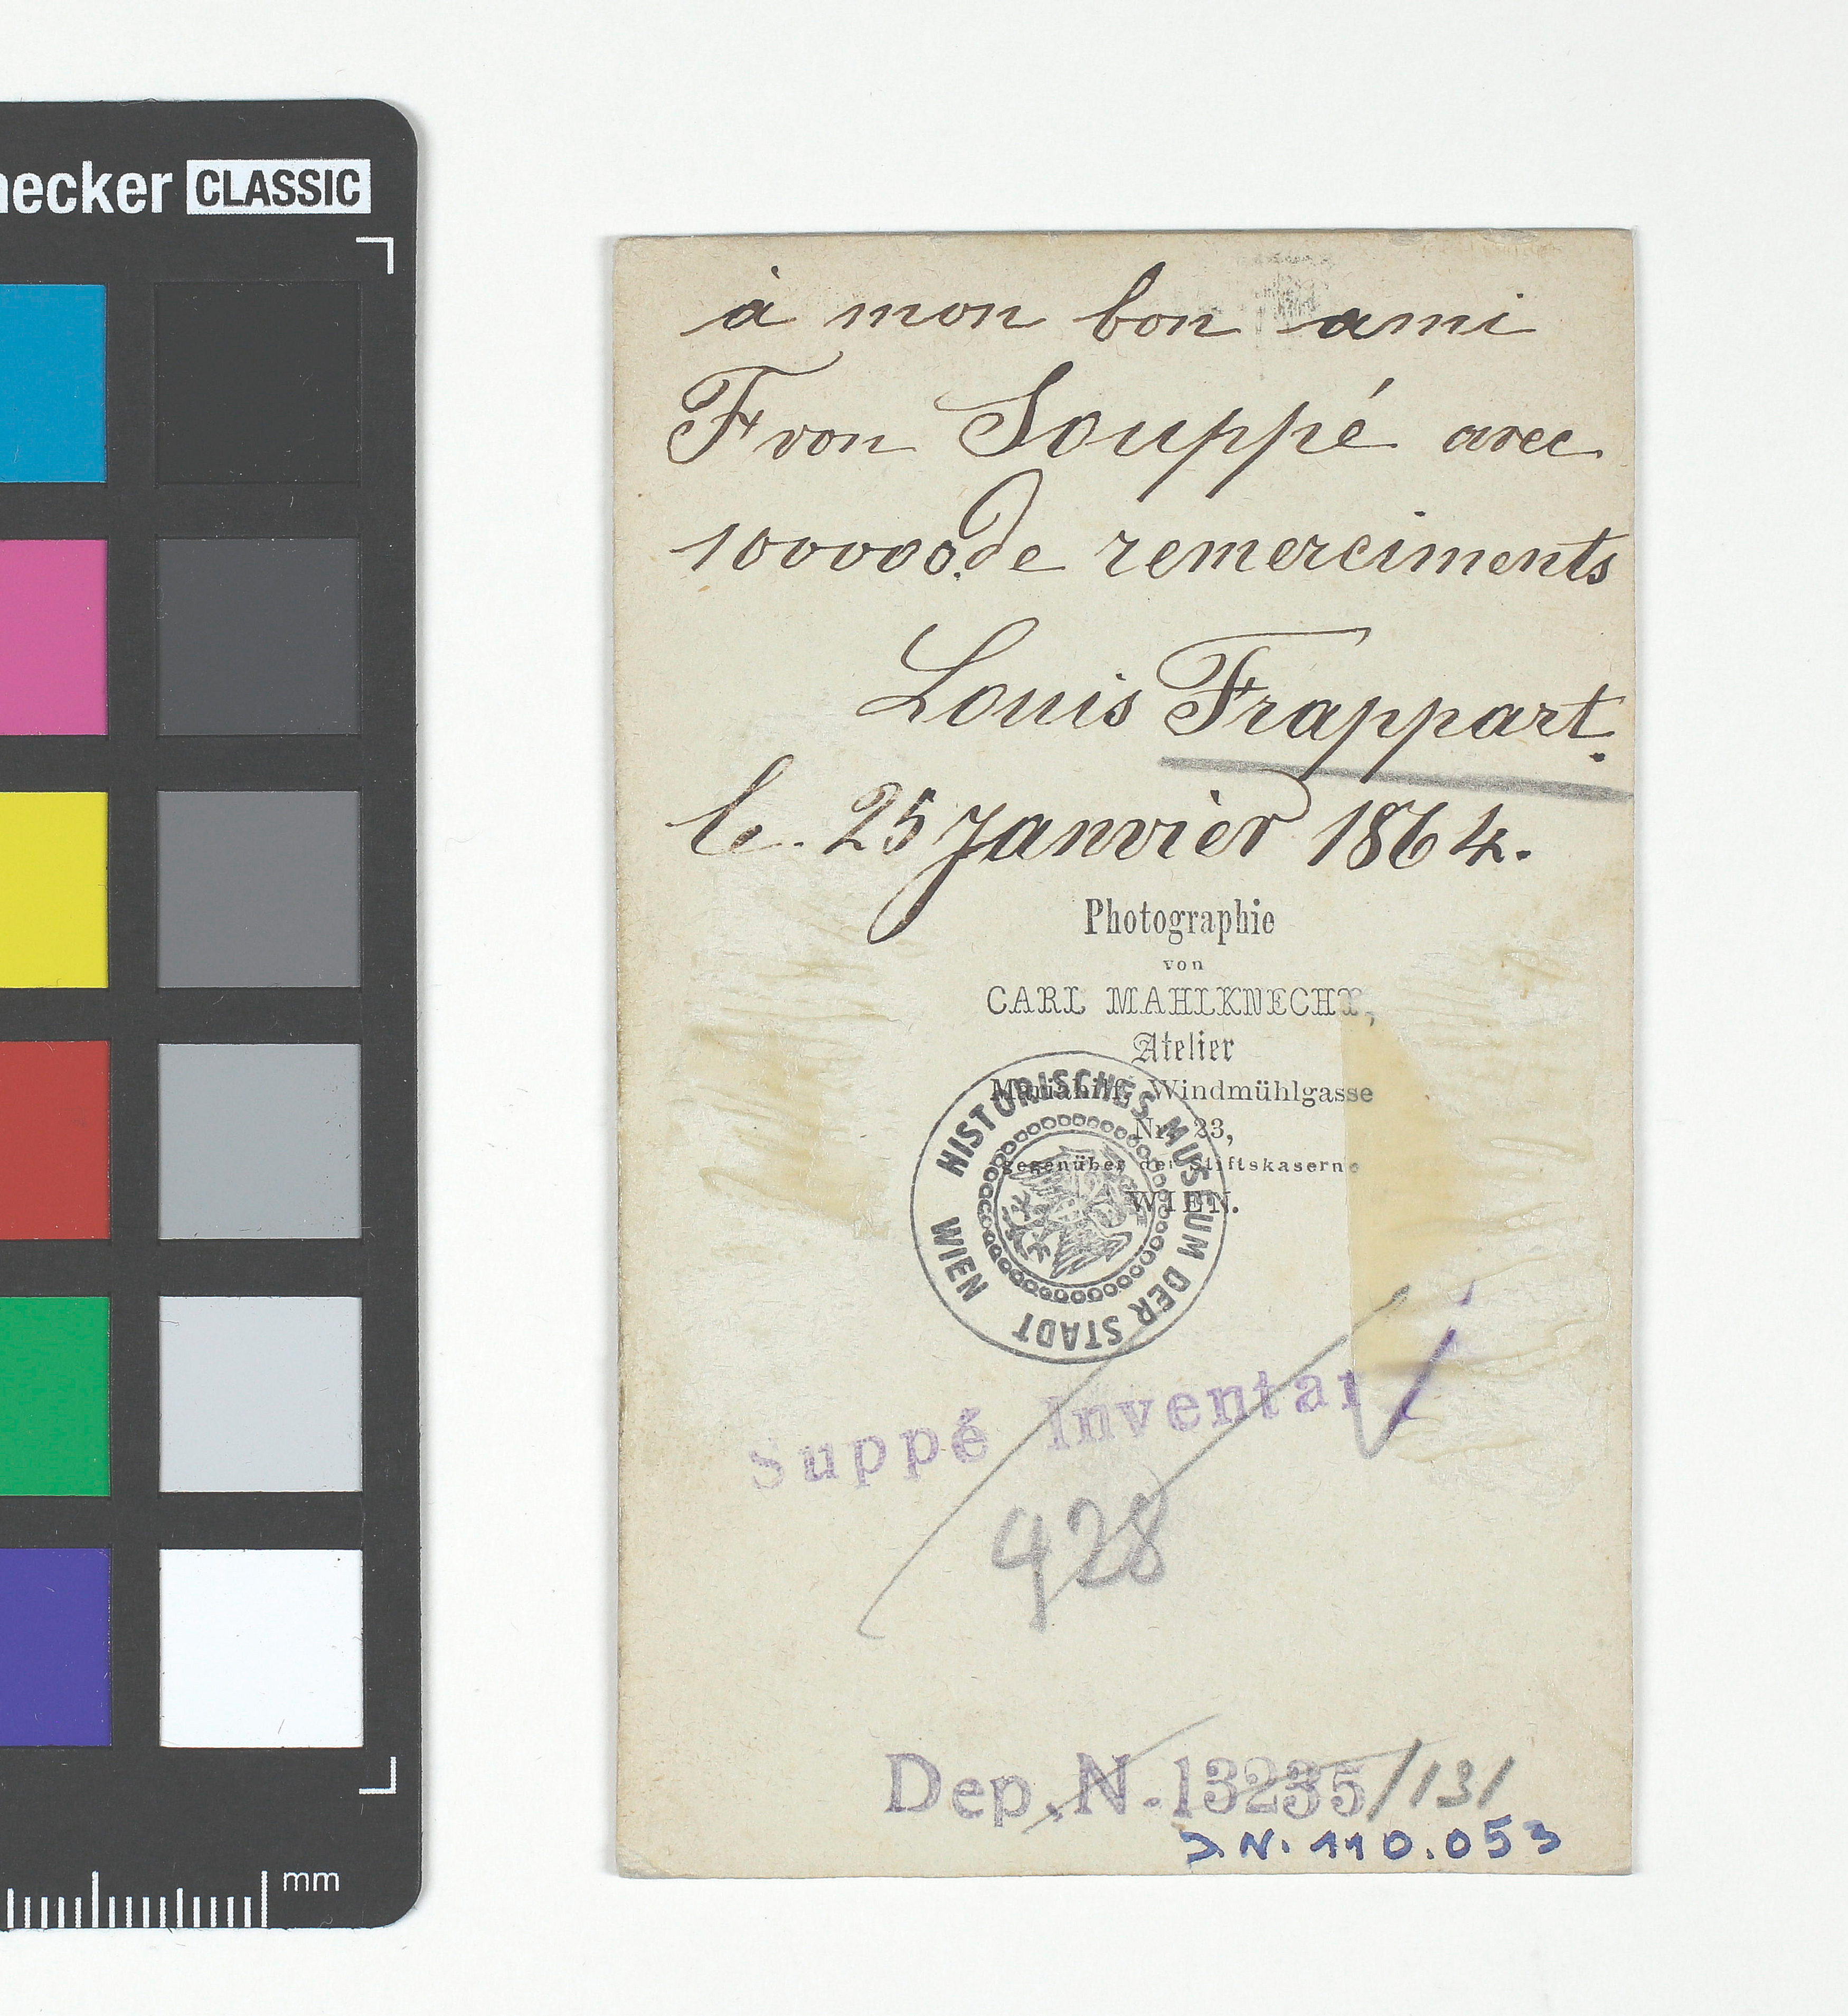 necker CLASSIC
à mon bon ami
F von Souppé avec
100000. de remerciments
Louis Frappart.
le. 25 Janvièr 1864.
Photographie
von
CARL MAHLKNECHT,
Atelier
Mariahilf, Windmühlgasse
Nr. 23,
gegenüber der Stiftskaserne
WIEN.
HISTORISCHES MUSEUM DER STADT WIEN
Suppé Inventar
928
Dep. N. 13235/131
J.N. 110.053
mm